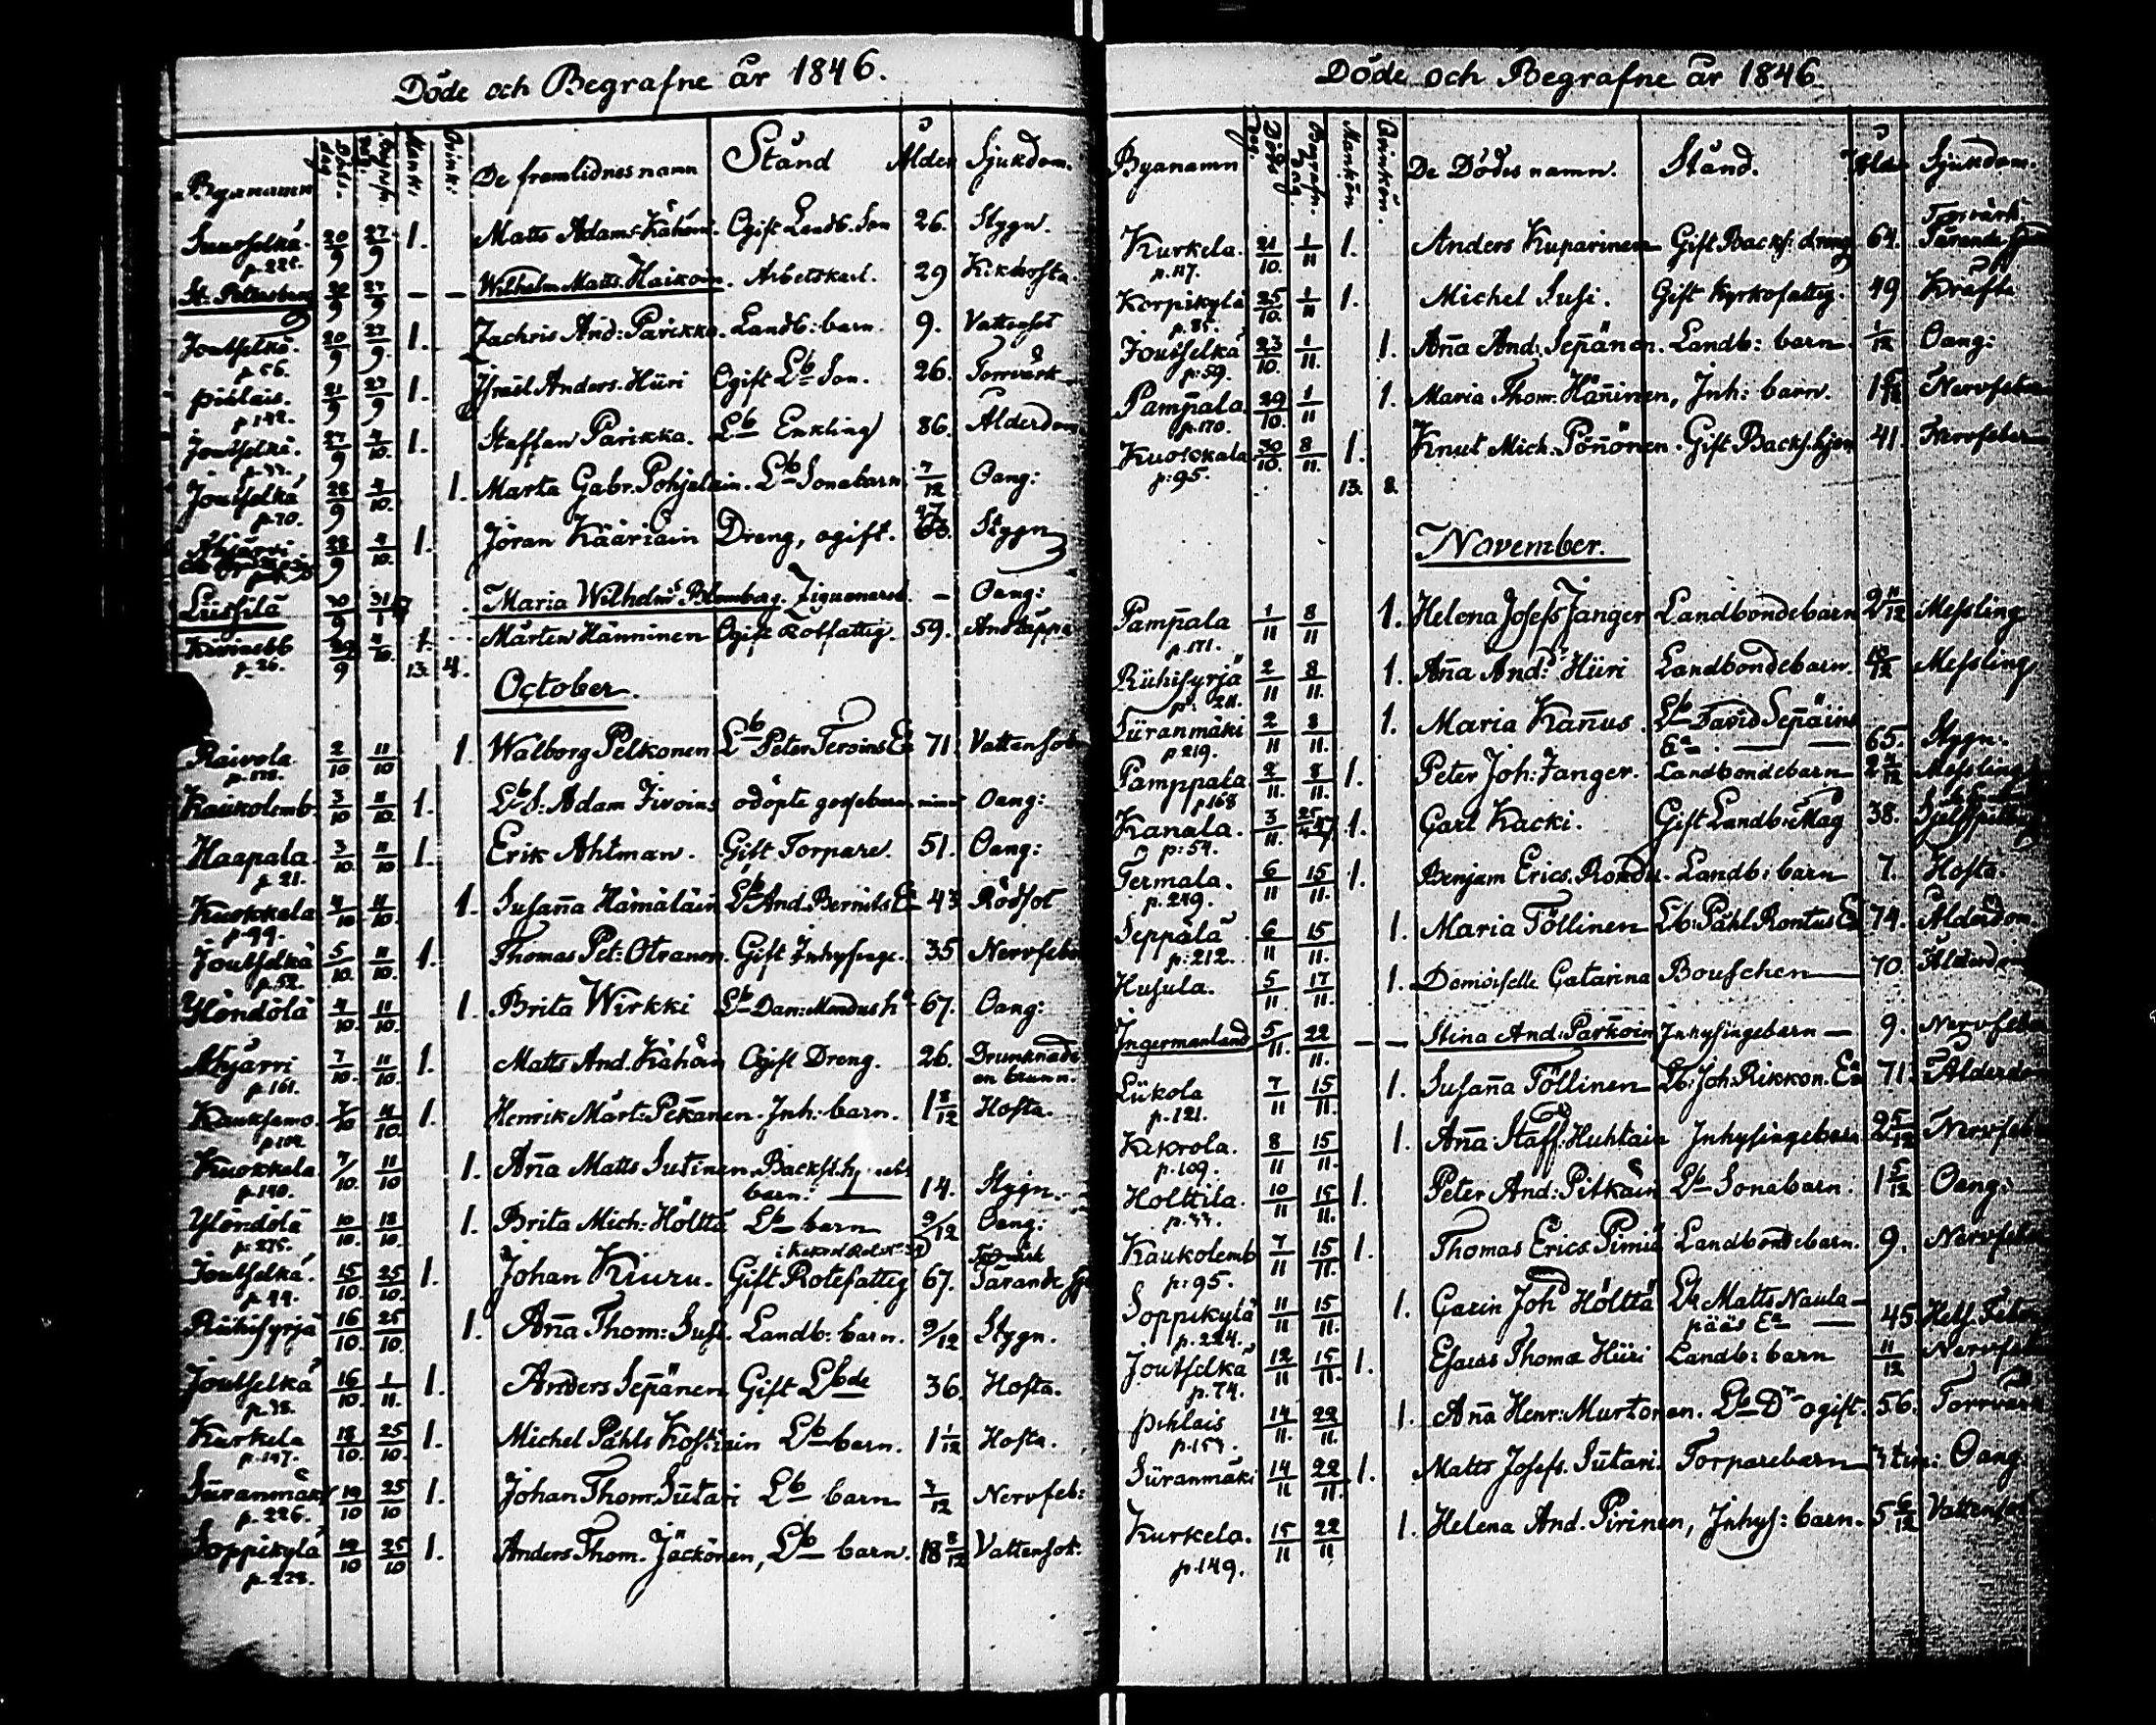 Döde och Begrafne år 1846.
Byanamn Döds- dag Begrafn. dag. Mank: Qvink: De framlidnes namn Stånd Ålder Sjukdom.
Suurselkä. 20/9 27/9 1. Matts Adams. Kähöin. Ogift Landb. Son 26. Stygn.
p.
St: Petersburg 20/9 27/9 — — Wilhelm Matts. Haikoin. Arbetskarl. 29 Kikhosta.
Joutselkä. 20/9 27/9 1. Zachris And: Parikka. Landb: barn. 9. Vattensot
p. 56.
Pihlais. 21/9 27/9 1. Israel Anders. Hüri Ogift Lb Son. 26. Torrvärk
p. 142.
Joutselkä. 27/9 4/10. 1. Staffan Parikka. Lb Enkling 86. Ålderdom
Joutselkä 28/9 4/10. 1. Marta Gabr. Pohjolain. Lb Sonabarn 7/12 Oang:
p. 70.
28/9 4/10. 1. Jöran Kääriäin Dreng, ogift. Stygn
Liissilä 30/9 31/1 Maria Wilhelms Blomberg. Ziguenarsb. — Oang:
Kivinebb 29/9 4/10. 1. Mårten Hänninen Ogift Rotfattig 59. Andtäppa
p. 26. 13. 4.
October.
Raivola 2/10 11/10 1. Walborg Pelkonen Lb Peter Teroins Ea 71. Vattensot
p.
Kaukolemb. 3/10 11/10. 1. Lb S: Adam Ivoins odöpte gossebarn Oang:
Haapala. 3/10. 11/10 1. Erik Ahtman. Gift Torpare. 51. Oang:
p. 21.
Kuokkala 4/10 11/10. 1. Susan̄a Hämäläin Lb And. Ea 43 Rödsot
p. 99.
Joutselkä 5/10. 11/10. 1. Thomas Pet: Otranen. Gift Inhysinge. 35 Nervfeber
p. 52.
Ylöndölä 4/10. 11/10. 1. Brita Wirkki Lb Dan: 67. Oang:
Ahjärvi 7/10. 11/10. 1. Matts And. Kähöin Ogift Dreng. 26. Drunknade i
p. 161. en brunn.
Kauksamo. 7/10 11/10. 1. Henrik Mårt: Pekanen. Inh: barn. 1 8/12 Hosta.
p. 102
Kuokkala 7/10. 11/10 1. An̄a Matts Sutinen Backst.
p. 140. barn. — 14. Stygn.
Ylöndölä 10/10. 18/10. 1. Brita Mich: Hölttä Lb barn 9/12 Oang:
p. 275.
Joutselkä. 15/10. 25/10. 1. Johan Kiuru. Gift Rotefattig 67. Tärande
p. 99.
Rühisyrjä 16/10. 25/10. 1. An̄a Thom: Susi. Landb: barn. 9/12 Stygn.
Joutselkä 16/10. 1/11. 1. Anders Sep̄änen Gift Lbde 36. Hosta.
p. 38.
Kurkela 18/10. 25/10. 1. Michel Påhls Kostiain Lb barn. 1 1/12 Hosta.
p. 147.
Süranmäki 19/10 25/10 1. Johan Thom. Sūtari Lb barn Nervfeb:
p. 226.
Soppikylä 19/10 25/10 1. Anders Thom. Jäckönen, Lb barn. 18 8/12 Vattensot.
p. 228.
Döde och Begrafne år 1846
Byanamn Döds Dag. Begrafn. Dag. Mankön Qvinkön. De Dödes namn. Stånd. Ålder Sjukdom.
Torrvärk.
Kurkela. 21/10. 1/11 1. Anders Kuparinen Gift Backs: dreng 64. Tärande
p. 117.
Korpikylä 25/10. 1/11 1. Michel Susi. Gift Kyrkofattig. 49 Kräfta
p. 85.
Joutselkä 23/10. 1/11. 1. An̄a And. Sep̄änen. Landb: barn. 1/12 Oang:
p: 59.
Pamp̄ala. 29/10. 1/11. 1. Maria Thom. Hän̄inen, Inh: barn. Nervfeber
p. 170.
Kuokkala 30/10. 8/11. 1. Knut Mich. Pön̄önen. Gift Backs.hjon 41. Nervfeber
p: 95. 13. 8.
November.
Pamp̄ala 1/11 8/11 1. Helena Josefs Janger Landbondebarn 2 11/12 Messling
p. 171.
Rühisyrjä 2/11 8/11. 1. An̄a And: Hüri Landbondebarn. Messling
p. 211.
Süranmäki 2/11 8/11. 1. Maria Kan̄us. Lb David Sep̄äins
p 219. Ea — — 65. Stygn.
Pamppala 2/11. 8/11. 1. Peter Joh: Janger. Landbondebarn Messling
p 168
Kanala. 3/11. 1. Carl Kacki. Gift Landb: Måg 38.
p: 54.
Termala. 6/11 15/11. 1. Benjam Erics. Rondu. Landb: barn 7. Hosta.
p. 249.
Seppälä 6/11 15/11. 1. Maria Töllinen Lb: Påhl Rontus Ea 74. Ålderdom
p: 212.
Husula. 5/11 17/11. 1. Demoiselle Catarina Bouschen — 70. Ålderdom
Ingermanland 5/11. 22/11. — — Stina And: Parkoin Inhysingebarn — 9. Nervfeber
Lükola 7/11 15/11. 1. Susan̄a Töllinen Lb: Joh: Rikkon. Ea 71. Ålderdom
p. 121.
Kekrola. 8/11 15/11. 1. An̄a Staff: Huhtain Inhysingebarn 2 5/12 Nervfeb
p. 109.
Holttila. 10/11 15/11. 1. Peter And: Pitkäin Lb Sonabarn. 1 5/12 Oang:
p. 33.
Kaukolemb 7/11 15/11. 1. Thomas Erics. Pimiä Landbondebarn. 9. Nervfeber
p: 95.
Soppikylä 11/11 15/11. 1. Carin Johd Hölttä Lb Matts Naula-
p. 224. pääs Ea — 45
Joutselkä 12/11 15/11. 1. Esaias Thomæ Hüri Landb: barn 11/12 Nervfeb
p. 74.
Pihlais 14/11. 22/11. 1. An̄a Henr: Murtonen. Lb Dr ogift. 56. Torrvärk
p. 153.
Süranmäki 14/11 22/11. 1. Matts Josefs. Sūtari. Torparebarn Oang:
Kurkela. 15/11 22/11 1. Helena And. Pirinen, Inhys: barn. 5 6/12 Vattensot
p. 149.